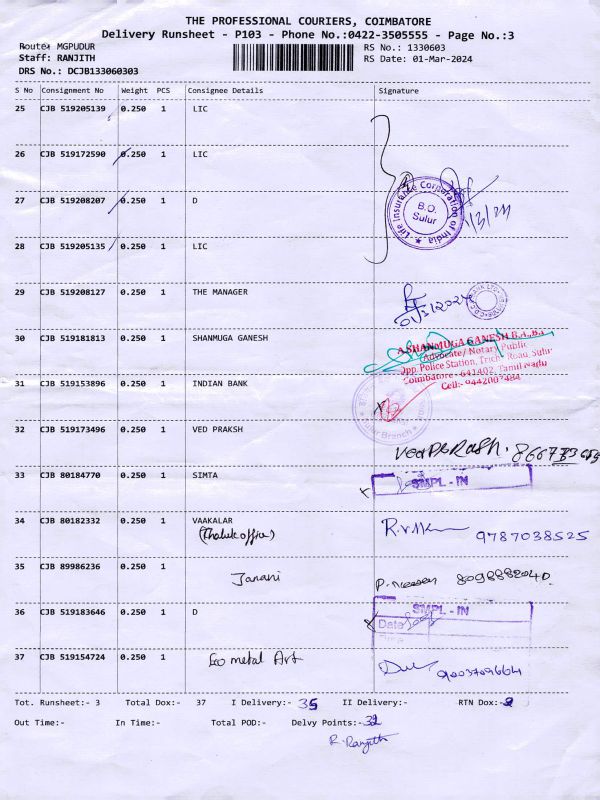 THE PROFESSIONAL COURIERS, COIMBATORE
Delivery Runsheet - P103 - Phone No.:0422-3505555 - Page No.:3
Route: MGPUDUR
RS No.: 1330603
Staff: RANJITH
RS Date: 01-Mar-2024
DRS No.: DCJB133060303
S No Consignment No Weight PCS Consignee Details Signature
25 CJB 519205139 0.250 1 LIC
26 CJB 519172590 0.250 1 LIC
27 CJB 519208207 0.250 1 D
Life Insurance Corporation of India.
B.O.
Sulur
28 CJB 519205135 0.250 1 LIC
29 CJB 519208127 0.250 1 THE MANAGER
01/3/2024
30 CJB 519181813 0.250 1 SHANMUGA GANESH
A.SHANMUGA GANESH B.A.,B.L.
Advocate/ Notary Public
Opp. Police Station, Trichy Road, Sulur
Coimbatore - 641402, Tamil Nadu
Cell:-
31 CJB 519153896 0.250 1 INDIAN BANK
Sulur Branch
32 CJB 519173496 0.250 1 VED PRAKSH
33 CJB 80184770 0.250 1 SIMTA
SMPL - IN
34 CJB 80182332 0.250 1 VAAKALAR
(Thaluk office)
9787038525
35 CJB 89986236 0.250 1 Janani
8098882040
36 CJB 519183646 0.250 1 D
SMPL - IN
Date
Time
37 CJB 519154724 0.250 1 Eco metal Art
9003709664
Tot. Runsheet:- 3 Total Dox:- 37 I Delivery:- 35 II Delivery:- RTN Dox:- 2
Out Time:- In Time:- Total POD:- Delvy Points:- 32
R. Ranjith